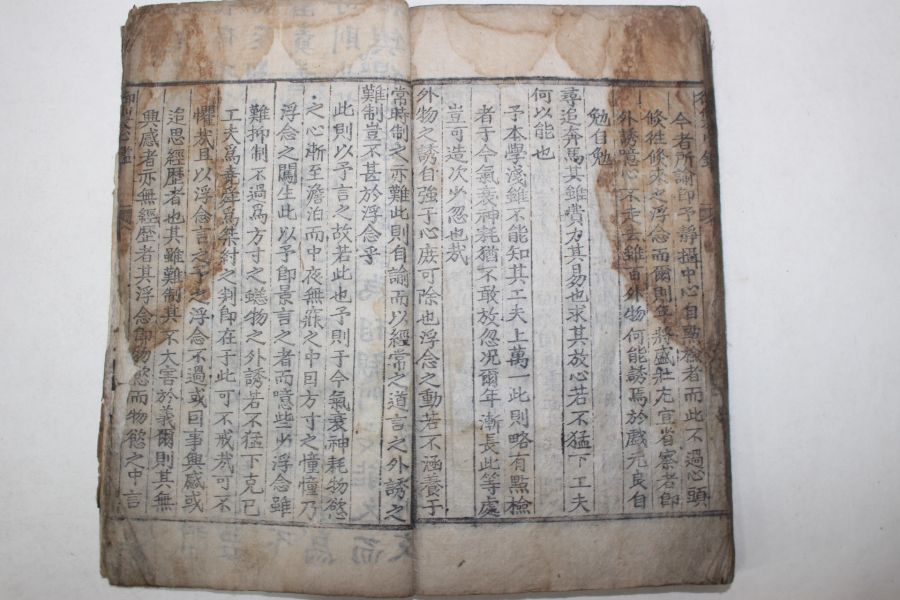 今者所諭卽予靜攝中心自點檢者而此不過心頭
倏往倏來之浮念而爾則年將盛壯尤宜省察者卽
外誘噫心不走去雖百外物何能誘焉於戲元良自
勉自勉
尋追奔馬其雖費力其易也求其放心若不猛下工夫
何以能也
予本學淺雖不能知其工夫上萬一此則略有點檢
者于今氣衰神耗猶不敢放忽况爾年漸長此等處
豈可造次少忽也哉
外物之誘自強于心庶可除也浮念之動若不涵養于
常時制之亦難此則自諭而以經常之道言之外誘之
難制豈不甚於浮念乎
此則以予言之故若此也予則于今氣衰神耗物慾
之心漸至澹泊而中夜無寐之中因方寸之憧憧乃
浮念之闖生此以予卽景言之者而噫些少浮念雖
難抑制不過爲方寸之蟋物之外誘若不猛下克己
工夫爲堯舜爲桀紂之判卽在于此可不戒哉可不
懼哉且以浮念言之予之浮念不過或因事興感或
追思經歷者也其雖難制其不大害於義爾則其無
興感者亦無經歷者其浮念卽物慾而物慾之中言